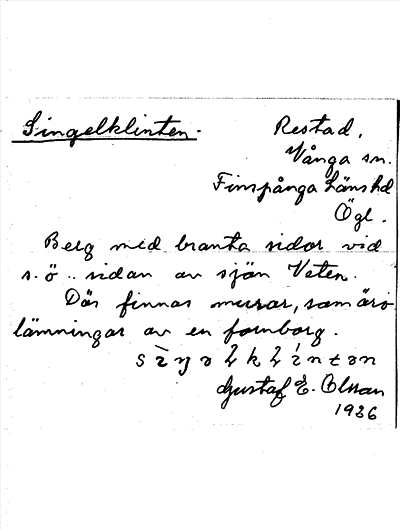 Singelklinten.
Restad,
Vånga sn.
Finspånga Länshd
Ögl.
Berg med branta sidor vid
s.ö.. sidan av sjön Veten.
Där finnas murar, som äro
lämningar av en fornborg.
Gustaf E. Olsson
1936